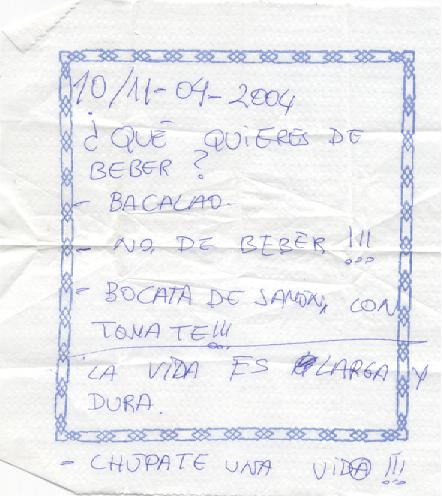 10/11-04-2004
¿QUÉ QUIERES DE
BEBER?
- BACALAO.
- NO, DE BEBER !!!
- BOCATA DE JAMON, CON
TOMATE!!!
LA VIDA ES LARGA Y
DURA.
- CHÚPATE UNA VIDA !!!